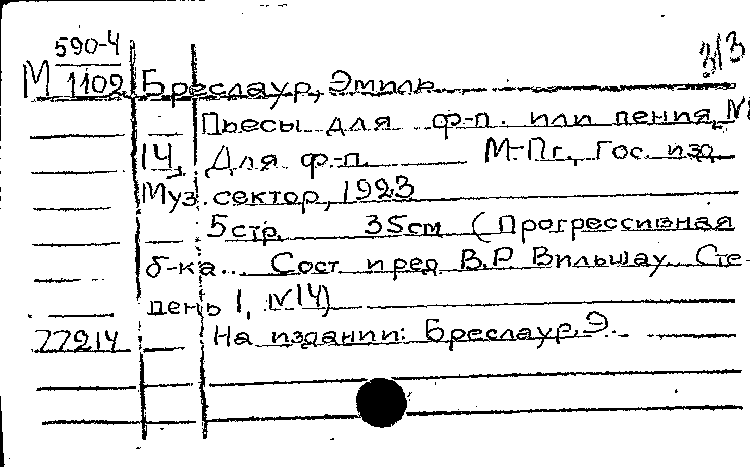 590-4
313
М 1102 Бреслаур, Эмиль
Пьесы для ф-п. или пения, №
14. Для ф-п. М.-Пг., Гос. изд.
Муз. сектор, 1923
5 стр. 35см (Прогрессивная
б-ка... Сост. и ред. В.Р. Вильшау. Сте-
пень 1, №14)
77214 На издании: Бреслаур, Э.